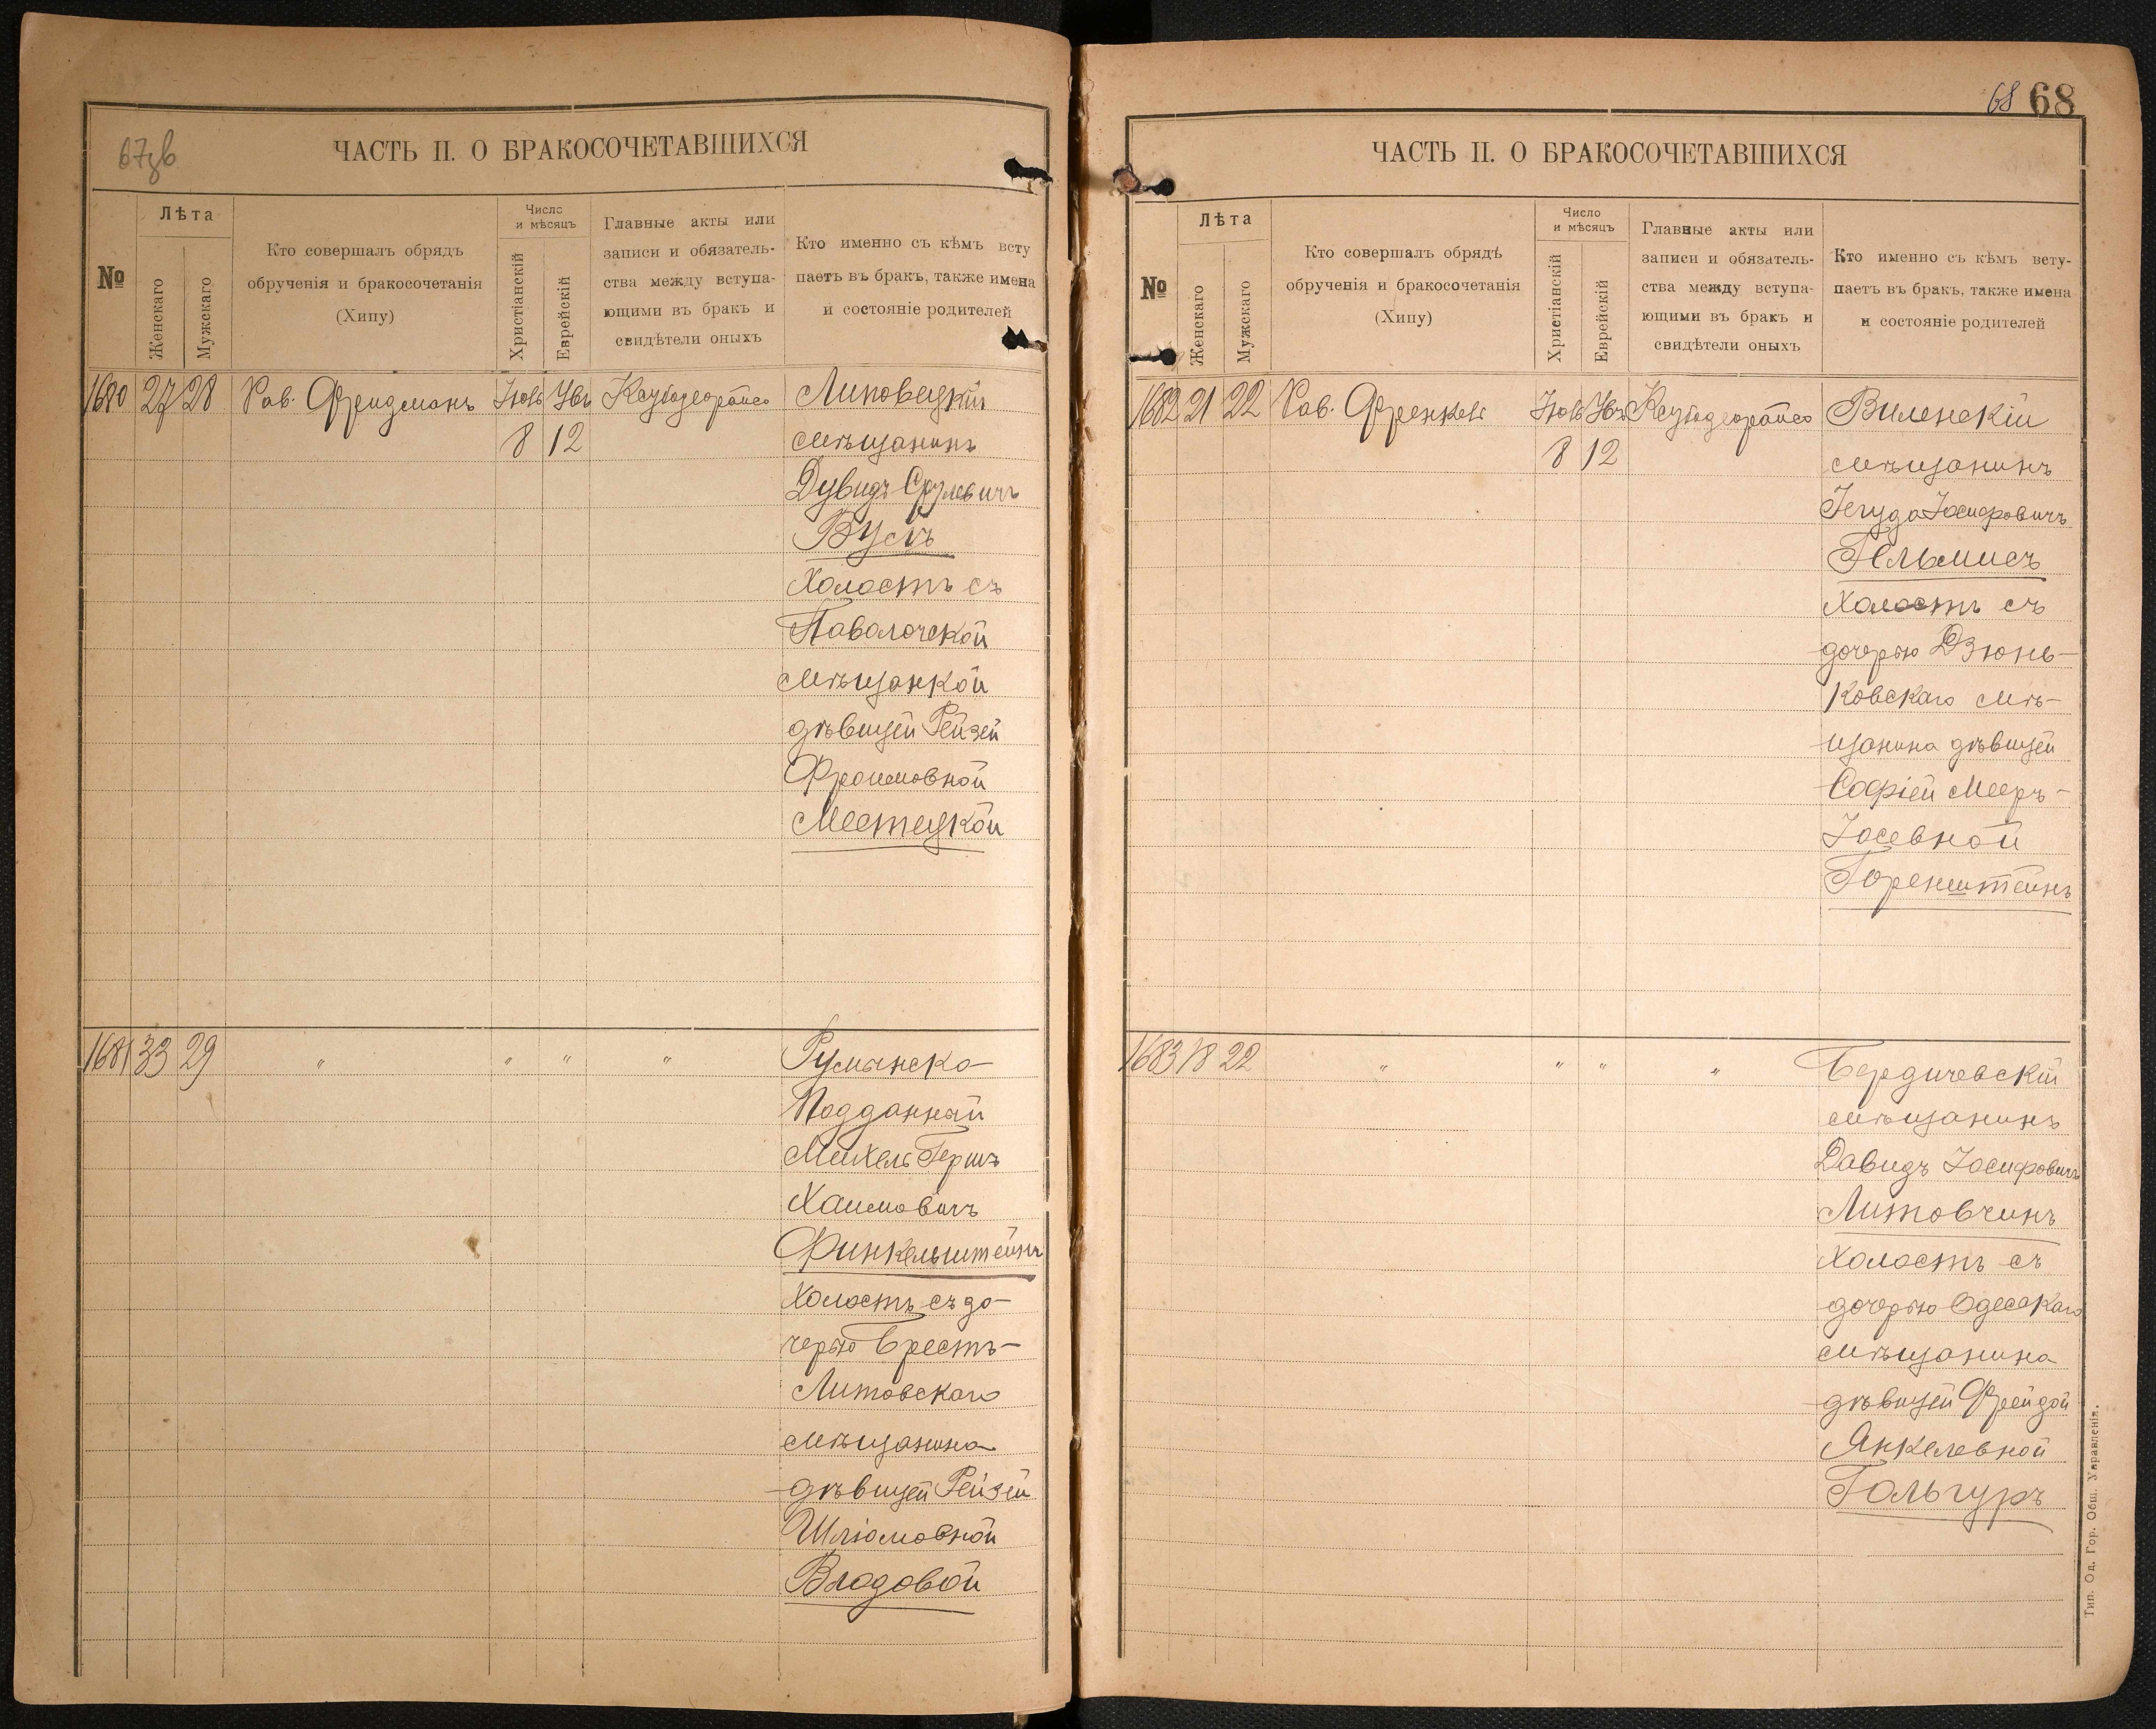 67об
ЧАСТЬ II. О БРАКОСОЧЕТАВШИХСЯ
№
Лѣта
Женскаго
Мужскаго
Кто совершалъ обрядъ
обрученія и бракосочетанія
(Хипу)
Число
и мѣсяцъ
Христіанскій
Еврейскій
Главные акты или
записи и обязатель-
ства между вступа-
ющими въ бракъ и
свидѣтели оныхъ
Кто именно съ кѣмъ всту
паетъ въ бракъ, также имена
и состояніе родителей
1680 27 28 Рав. Фридманъ
8 12
Липовецкій
мѣщанинъ
Дувидъ Срулевичъ
Вусъ
холостъ съ
Паволочской
мѣщанкой
дѣвицей Рейзей
Фроимовной
Местецкой
1681 33 29 " " " " Румынско-
Подданный
Михель Гершъ
Хаимовичъ
Финкельштейнъ
холостъ съ до-
черью Брестъ-
Литовскаго
мѣщанина
дѣвицей Рейзей
Шліомовной
Влодовой
68 68
ЧАСТЬ II. О БРАКОСОЧЕТАВШИХСЯ
№
Лѣта
Женскаго
Мужскаго
Кто совершалъ обрядѣ
обрученія и бракосочетанія
(Хипу)
Число
и мѣсяцъ
Христіанскій
Еврейскій
Главные акты или
записи и обязатель-
ства между вступа-
ющими въ бракъ и
свидѣтели оныхъ
Кто именно съ кѣмъ всту-
паетъ въ бракъ, также имена
и состояніе родителей
1682 21 22 Рав. Френкель
8 12
Виленскій
мѣщанинъ
Іегуда Іосифовичъ
Гельмисъ
холостъ съ
дочерью Дзюнь-
ковскаго мѣ-
щанина дѣвицей
Софіей Мееръ-
Іосевной
Горенштейнъ
1683 18 22 " " " " Бердичевскій
мѣщанинъ
Давидъ Іосифовичъ
Литовчинъ
холостъ съ
дочерью Одесскаго
мѣщанина
дѣвицей Фрейдой
Янкелевной
Гольгуръ
Тип. Од. Гор. Общ. Управленія.